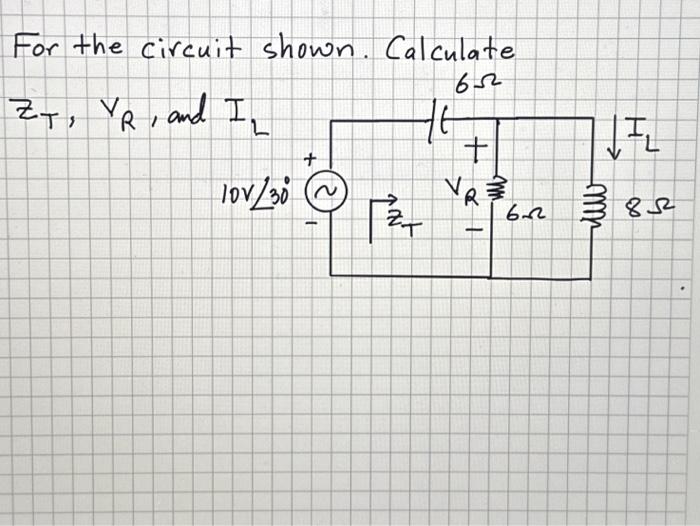 For the circuit shown. Calculate
Z_T, V_R, and I_L
6Ω
+
I_L
+
10V∠30°
~
Z_T
V_R
6Ω
8Ω
-
-